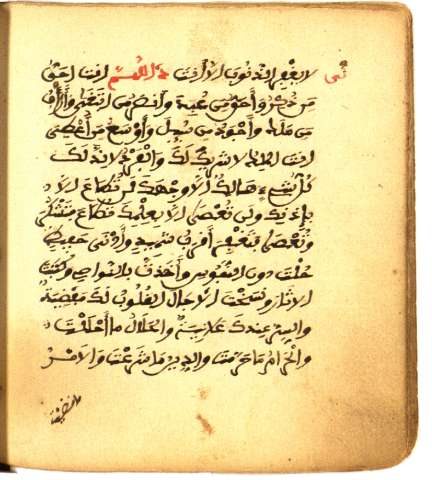 لا يغفر الذنوب الا أنت اللهم انت احق
من ذكر وأحق من عبد وأنصر من ابتغي وأرأف
من ملك وأجود من سئل وأوسع من أعطى
انت الملك لا شريك لك والفرد لا ند لك
كل شيء هالك الا وجهك لن تطاع الا
بإذنك ولن تعصى الا بعلمك تطاع فتشكر
وتعصى فتغفر أقرب شهيد وأدنى حفيظ
حلت دون النفوس وأخذت بالنواصي وكتبت
الاثار ونسخت الاجال القلوب لك مفضية
والسر عندك علانية والحلال ما أحللت
والحرام ما حرمت والدين ما شرعت والامر
ما قضيت